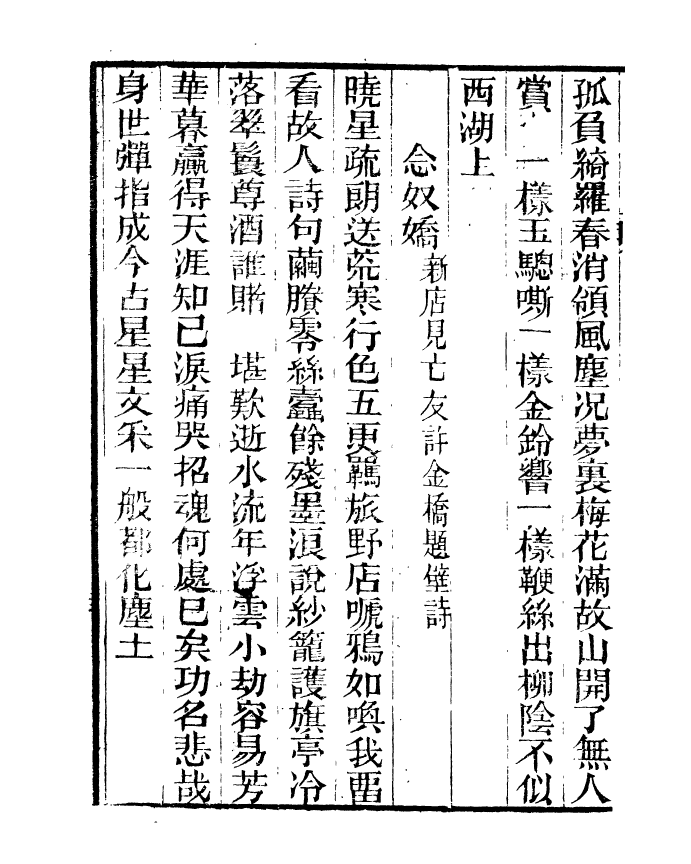 孤負綺羅春消領風塵况夢裏梅花滿故山開了無人
賞 一樣玉驄嘶一樣金鈴響一樣鞭絲出柳陰不似
西湖上
念奴嬌新店見亡友許金橋題壁詩
曉星疏朗送荒寒行色五更羈旅野店嗁鴉如喚我畱
看故人詩句繭賸零絲蠹餘殘墨浪說紗籠護旗亭冷
落翠鬟尊酒誰賭 堪歎逝水流年浮雲小劫容易芳
華暮贏得天涯知己淚痛哭招魂何處已矣功名悲哉
身世彈指成今古星星文采一般都化塵土